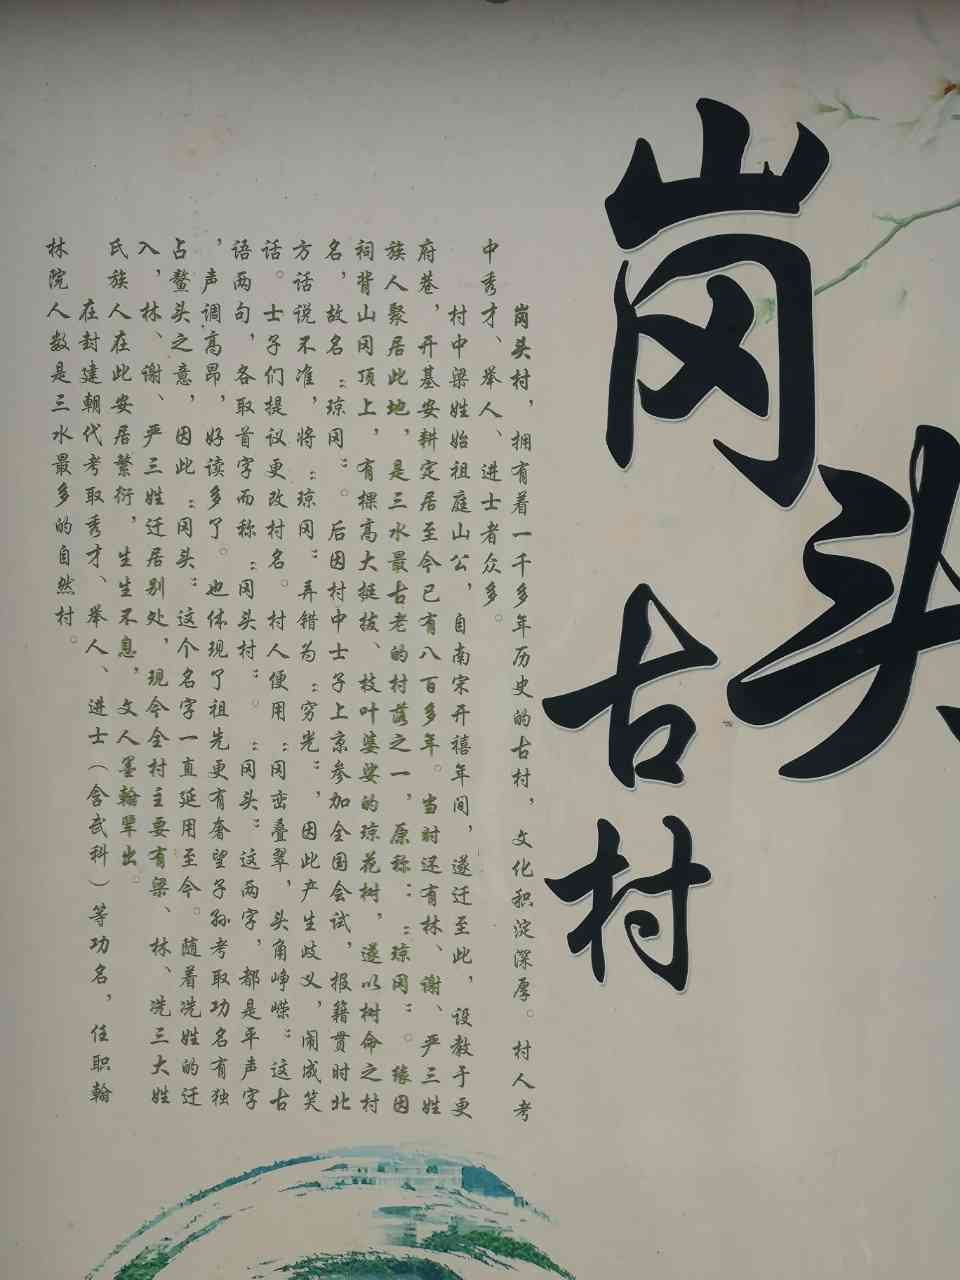 岗头
古村
岗头村，拥有着一千多年历史的古村，文化积淀深厚。村人考
中秀才、举人、进士者众多。
村中梁姓始祖庭山公，自南宋开禧年间，遂迁至此，设教于更
府巷，开基安耕定居至今已有八百多年。当时还有林、谢、严三姓
族人聚居此地，是三水最古老的村落之一，原称：“琼冈”。缘因
祠背山冈顶上，有棵高大挺拔、枝叶婆娑的琼花树，遂以树命之村
名，故名“琼冈”。后因村中士子上京参加全国会试，报籍贯时北
方话说不准，将“琼冈”弄错为“穷光”，因此产生歧义，闹成笑
话。士子们提议更改村名。村人便用“冈峦叠翠，头角峥嵘”这古
语两句，各取首字而称“冈头村”。“冈头”这两字，都是平声字
，声调高昂，好读多了。也体现了祖先更有奢望子孙考取功名有独
占鳌头之意，因此“冈头”这个名字一直延用至今。随着冼姓的迁
入，林、谢、严三姓迁居别处，现今全村主要有梁、林、冼三大姓
氏族人在此安居繁衍，生生不息，文人墨翰辈出。
在封建朝代考取秀才、举人、进士（含武科）等功名，任职翰
林院人数是三水最多的自然村。